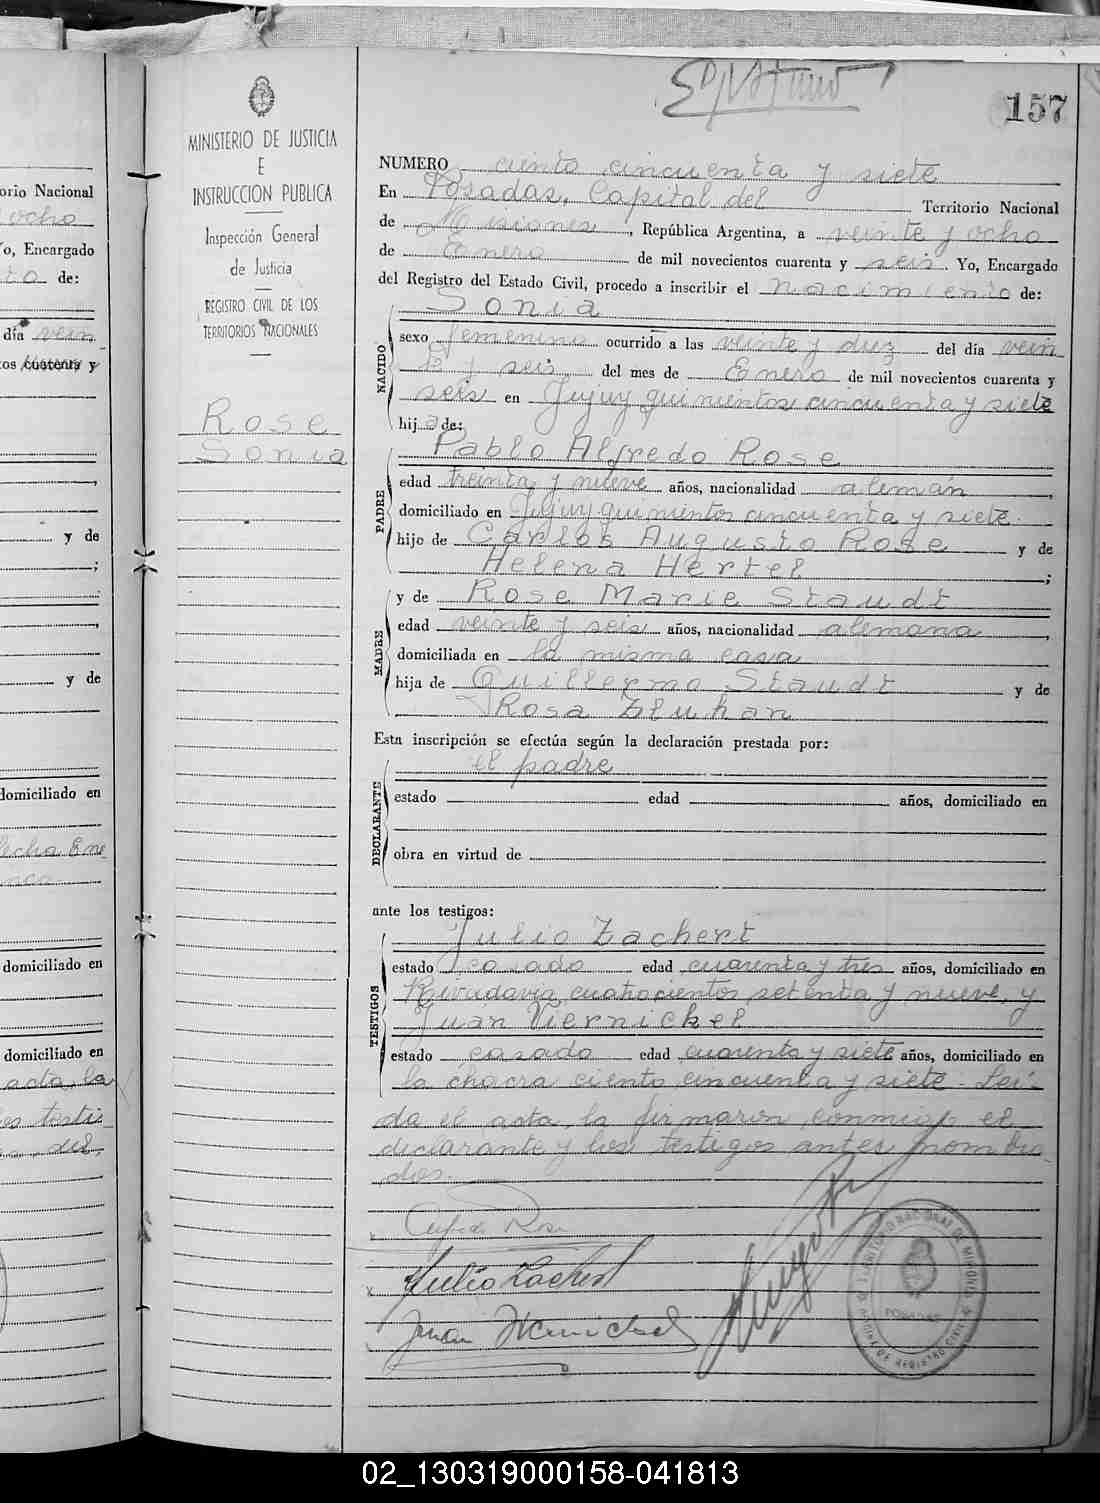 157
MINISTERIO DE JUSTICIA
E
INSTRUCCION PUBLICA
Inspección General
de Justicia
REGISTRO CIVIL DE LOS
TERRITORIOS NACIONALES
Rose
Sonia
NUMERO ciento cincuenta y siete
En Posadas, Capital del Territorio Nacional
de Misiones, República Argentina, a veinte y ocho
de Enero de mil novecientos cuarenta y seis. Yo, Encargado
del Registro del Estado Civil, procedo a inscribir el nacimiento de:
NACIDO
Sonia
sexo femenino ocurrido a las veinte y diez del día vein
te y seis del mes de Enero de mil novecientos cuarenta y
seis en Jujuy quinientos cincuenta y siete
hija de:
PADRE
Pablo Alfredo Rose
edad treinta y nueve años, nacionalidad aleman,
domiciliado en Jujuy quinientos cincuenta y siete.
hijo de Carlos Augusto Rose y de
Helena Hertel;
MADRE
y de Rose Marie Staudt
edad veinte y seis años, nacionalidad alemana,
domiciliada en la misma casa
hija de Guillermo Staudt y de
Rosa Zluhan
Esta inscripción se efectúa según la declaración prestada por:
DECLARANTE
el padre
estado edad años, domiciliado en
obra en virtud de
ante los testigos:
TESTIGOS
Julio Zachert
estado casado edad cuarenta y tres años, domiciliado en
Rivadavia cuatrocientos setenta y nueve, y
Juan Viernickel
estado casado edad cuarenta y siete años, domiciliado en
la chacra ciento cincuenta y siete - Leí-
da el acta, la firmaron conmigo el
declarante y los testigos antes nombra
dos.
Alfredo Rose
Julio Zachert
Juan Viernickel
POSADAS
orio Nacional
ocho
Yo, Encargado
de:
día vein
tos cuarenta y
y de
;
y de
domiciliado en
fecha Ene
domiciliado en
domiciliado en
acta, la
os testi
del
02_130319000158-041813